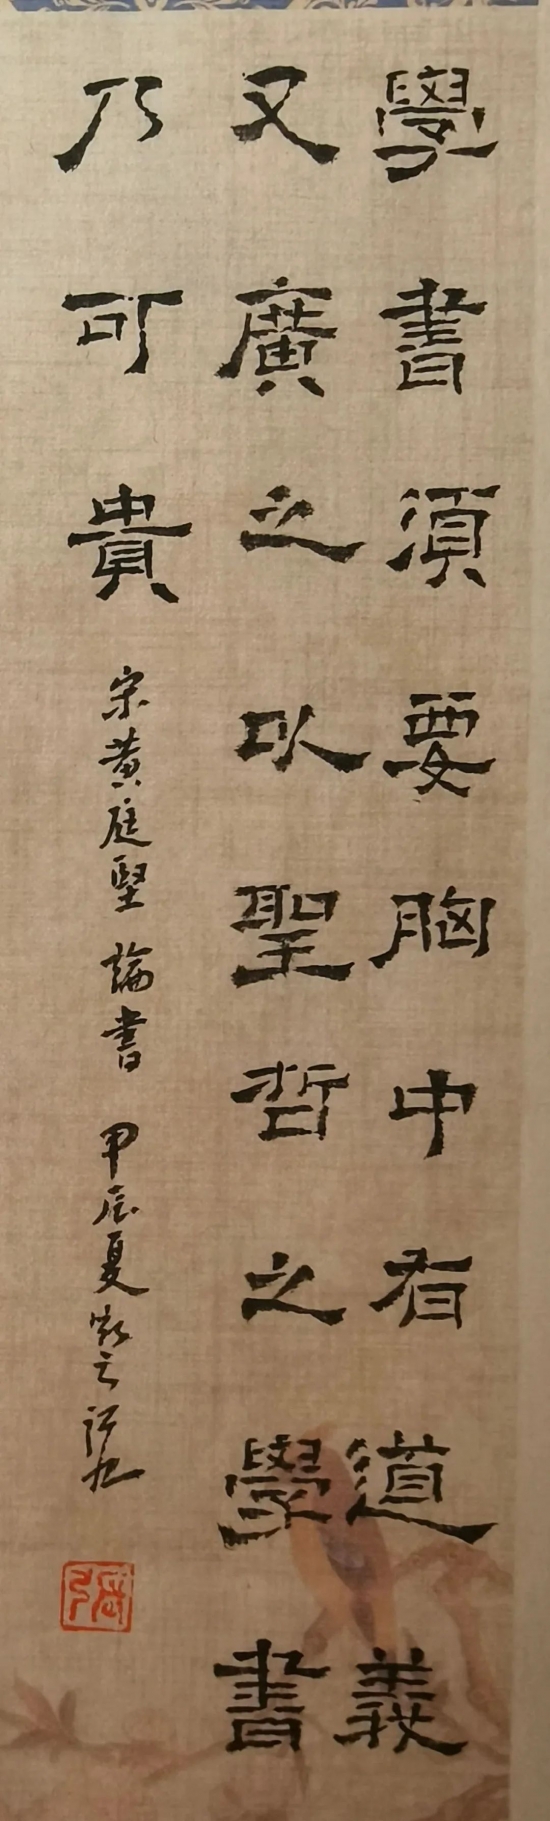 學書須要胸中有道義
又廣之以聖哲之學書
乃可貴
宋黃庭堅論書 甲辰夏
張